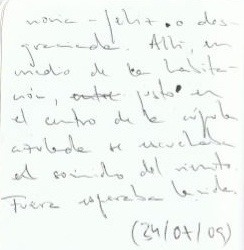 noria - feliz o des-
graciada. Allí, en
medio de la habita-
ción, justo en
el centro de la cúpula
azulada se escuchaba
el sonido del viento.
Fuera esperaba la vida.
(24/07/09)